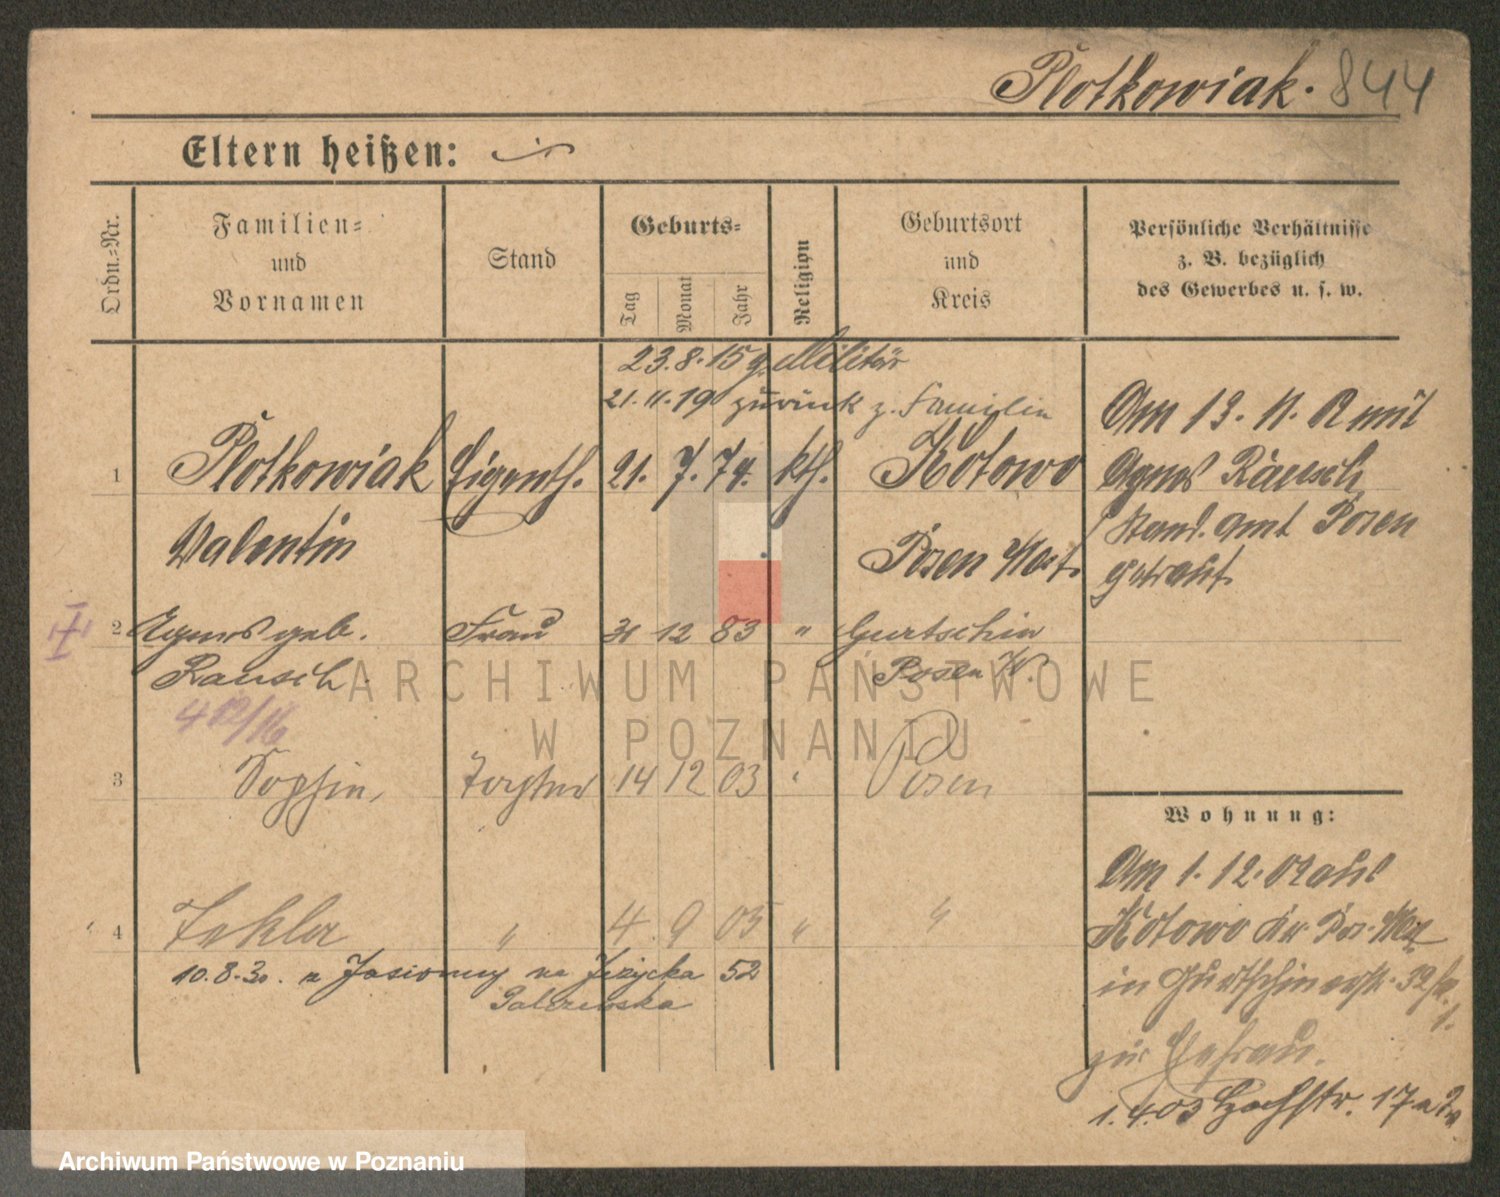 Plotkowiak. 844
Eltern heißen:
Ordn.-Nr.
Familien-
und
Vornamen
Stand
Geburts-
Tag
Monat
Jahr
Religion
Geburtsort
und
Kreis
Persönliche Verhältnisse
z. B. bezüglich
des Gewerbes u. s. w.
23.8.15 z. Militär
21.11.19 zurück z. Familie
1 Plotkowiak Eigenth. 21. 7. 74. kth. Kotowo
Valentin Posen West.
Am 13. 11. 02 mit
Agnes Räusch
Stand. Amt Posen
getraut.
2 Agnes geb. Frau 31 12 83 " Gurtschin
Rausch. Posen W.
482/16
3 Sophie, Tochter 14 12 03 " Posen
4 Tekla " 4 9 05 " "
10.8.30. Jasiony na Jeżycka 52
Palczewska
Wohnung:
Am 1. 12. 02 aus
Kotowo Kr. Pos. West
in Gurtschinerstr. 32
1.
zur Ehefrau.
1.4.03 Hochstr. 17
ARCHIWUM PAŃSTWOWE
W POZNANIU
Archiwum Państwowe w Poznaniu